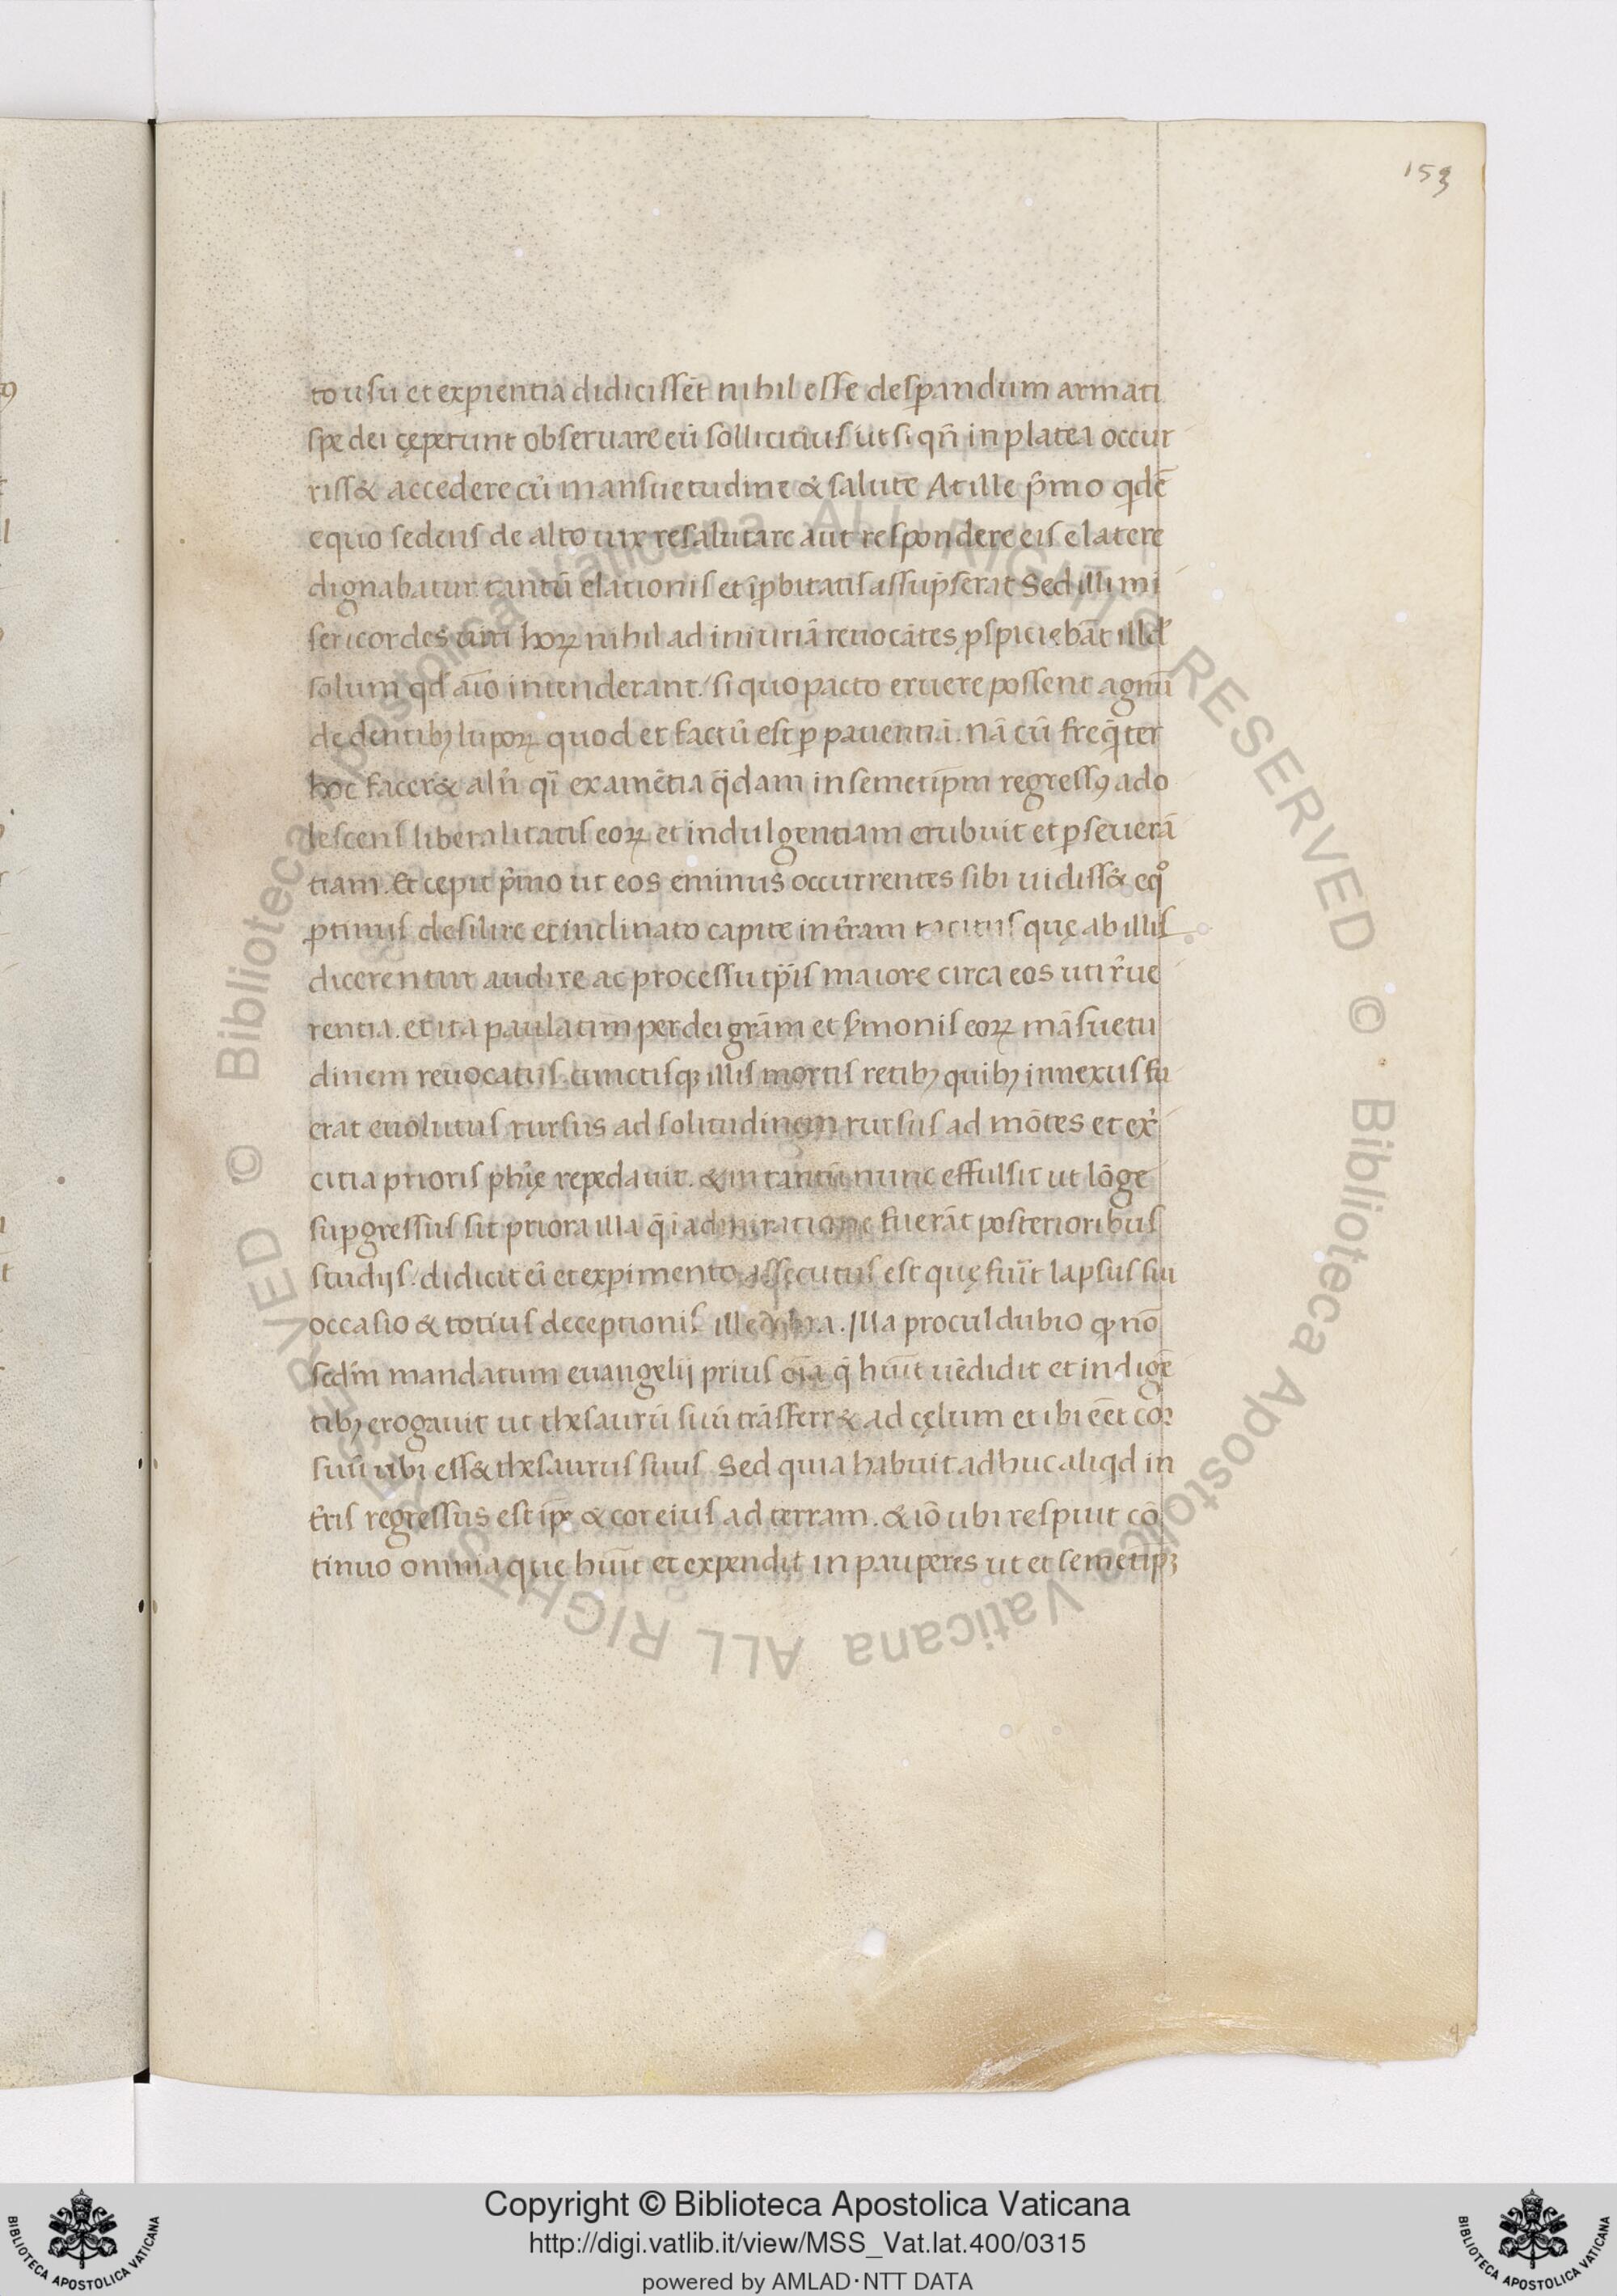 153
to usu et exꝑientia didicissēt nihil esse desꝑandum armati
spe dei cęperunt obseruare eū sollicitius ut si qn̄ in platea occur
riss& accedere cū mansuetudine & salute At ille p̄mo qdē
equo sedens de alto uix resalutare aut respondere eis elatere
dignabatur tantū elationis et īꝓbitatis assūpserat Sed illi mi
sericordes uiri hoꝝ nihil ad iniuriā reuocātes ꝑspiciebāt illd̓
solum qd̓ aīo intenderant si quo pacto eruere possent agnū
de dentibꝫ lupoꝝ quod et factū est ꝑ patientiā. Nā cū freq̄ter
hoc facer& alr̄i qī ex amētia q̄dam in semetip̄m regressꝰ ado
lescens liberalitatis eoꝝ et indulgentiam erubuit et ꝑseuerā
tiam. Et cepit p̄mo ut eos eminus occurrentes sibi uidiss& eqͦ
ꝓtinus desilire et inclinato capite in t̄ram tacitus quę ab illis
dicerentur audire ac processu tp̄is maiore circa eos uti r̄ue
rentia. et ita paulatim per dei grām et s̓monis eoꝝ māsuetu
dinem reuocatus cunctisqꝫ illis mortis retibꝫ quibꝫ innexus fu
erat euolutus rursus ad solitudinem rursus ad mōtes et ex̓
citia prioris phi̓ę repedauit. & in tantū nunc effulsit ut lōge
suꝑgressus sit priora illa q̄ ī admiratione fuerāt posterioribus
studijs. didicit ei et exꝑimento assecutus est quę fuīt lapsus sui
occasio & totius deceptionis illecebra. Illa procul dubio ꝙ nō
scd̓m mandatum euangelij prius oīa q̄ huīt uēdidit et indigē
tibꝫ erogauit ut thesaurū suū trāsferr& ad cęlum et ibi eēt cor
suū ubi ess& thesaurus suus Sed quia habuit adhuc aliqd in
t̄ris regressus est ip̄e & cor eius ad terram. & iō ubi respuit cō
tinuo omnia que huīt et expendit in pauperes ut et semetipꝫ
Copyright © Biblioteca Apostolica Vaticana
http://digi.vatlib.it/view/MSS_Vat.lat.400/0315
powered by AMLAD·NTT DATA